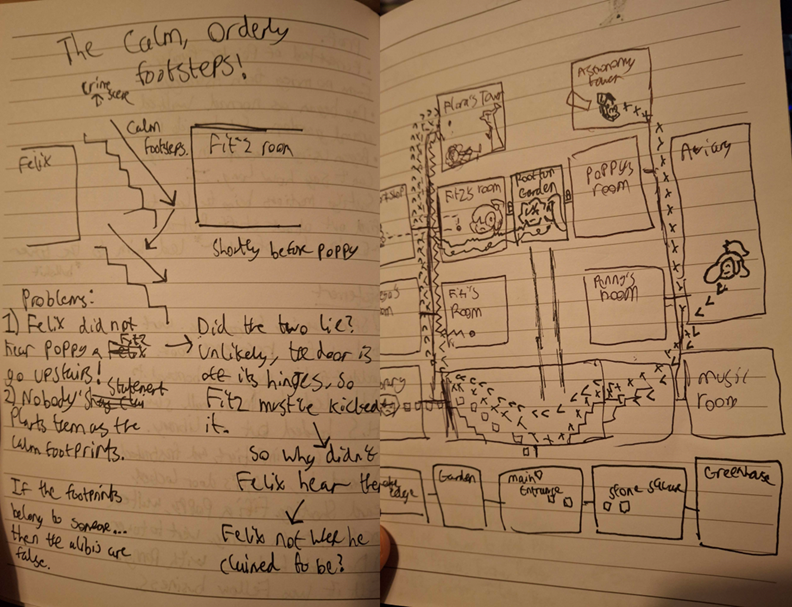 The Calm, Orderly
footsteps!
Crime
scene
Calm
footsteps.
Felix
Fitz room
Shortly before poppy
Problems:
1) Felix did not
hear Poppy a Fitz
go upstairs!
2) Nobody's statement
Plants them as the
Calm footprints.
If the footprints
belong to someone...
then the alibis are
false.
Did the two lie?
Unlikely, the door is
off its hinges, so
Fitz must've kicked
it.
So why didn't
Felix hear the
Felix not where he
claimed to be?
Flora's Tower
Astronomy
tower
Aviary
Fitz's room
Rooftop
Garden
Poppy's
room
Room
Anny's
room
music
room
Garden
main
Entrance
Stone square
Greenhouse